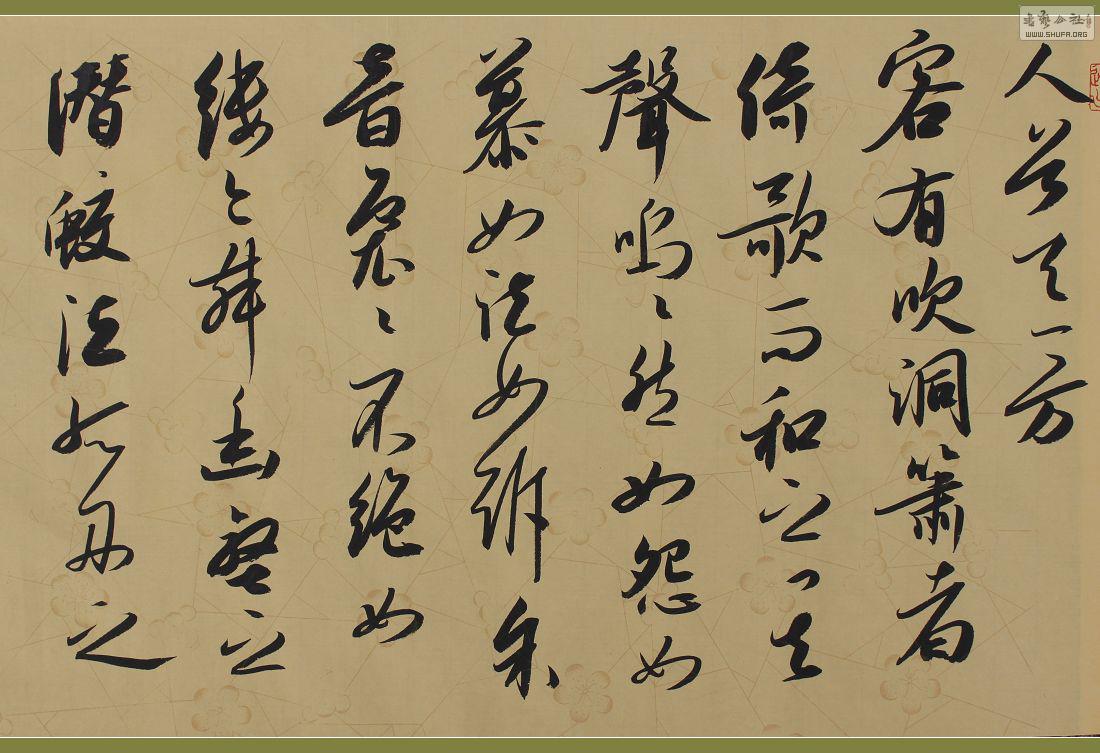 人兮天一方
客有吹洞簫者
倚歌而和之其
聲嗚〻然如怨如
慕如泣如訴余
音裊〻不絕如
縷〻舞幽壑之
潛鮫泣孤舟之
书艺公社
WWW.SHUFA.ORG